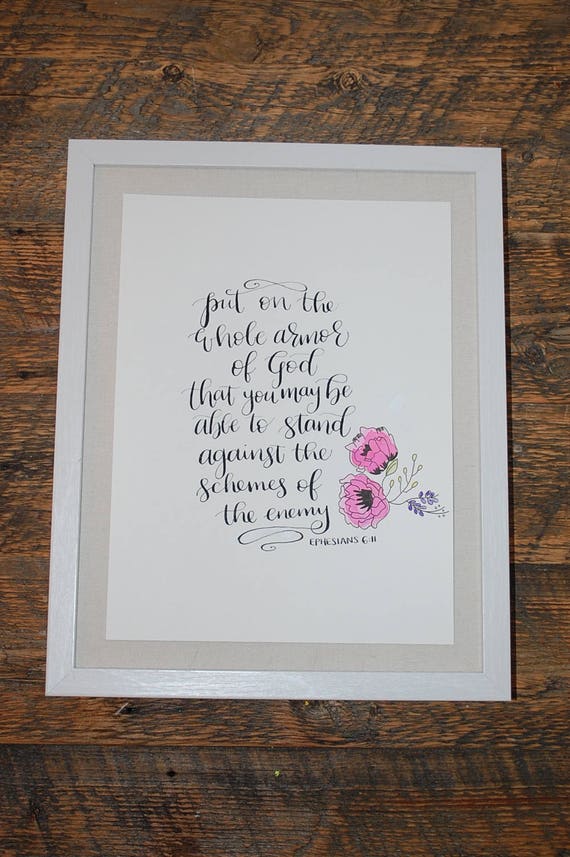 put on the
whole armor
of God
that you may be
able to stand
against the
schemes of
the enemy
EPHESIANS 6:11